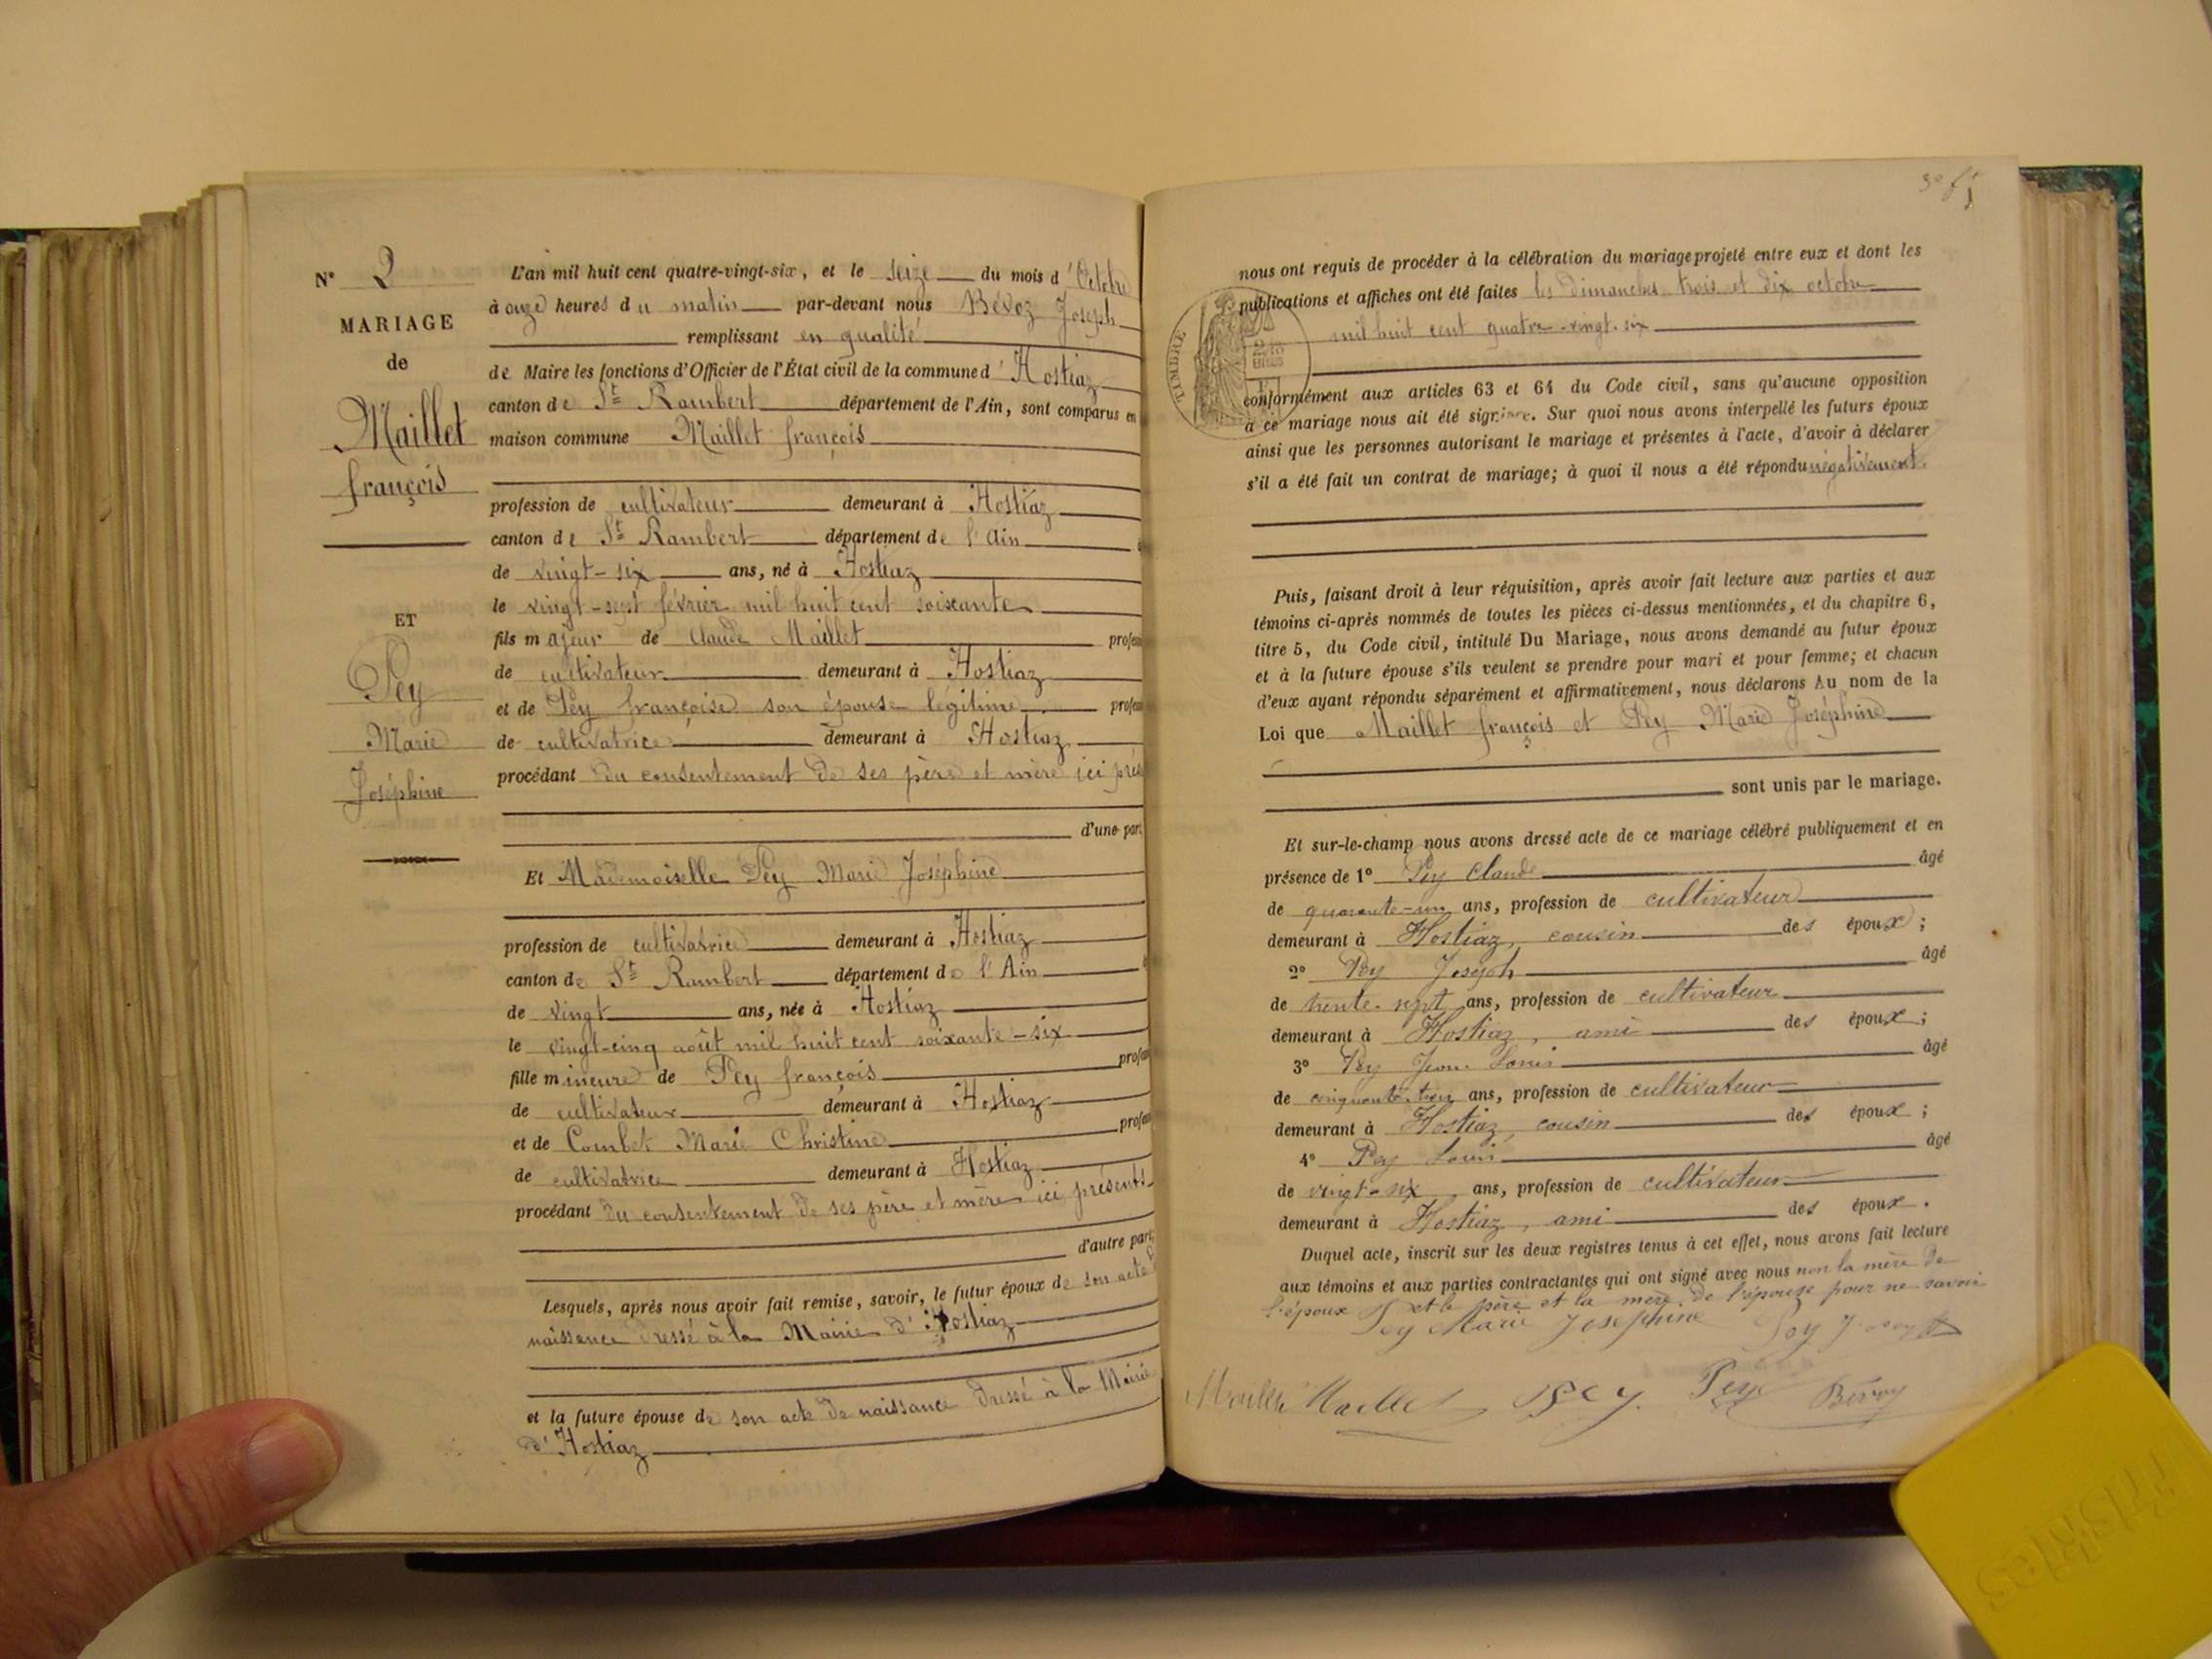 N° 2
MARIAGE
de
Maillet
françois
ET
Pey
Marie
Joséphine
L'an mil huit cent quatre-vingt-six, et le seize du mois d'Octobre
à onze heures du matin par-devant nous Bévoz Joseph
remplissant en qualité
de Maire les fonctions d'Officier de l'État civil de la commune d'Hostiaz
canton de St Rambert département de l'Ain, sont comparus en
maison commune Maillet françois
profession de cultivateur demeurant à Hostiaz
canton de St Rambert département de l'Ain
de vingt-six ans, né à Hostiaz
le vingt-sept février mil huit cent soixante
fils majeur de Claude Maillet profes
de cultivateur demeurant à Hostiaz
et de Pey françoise son épouse légitime profes
de cultivatrice demeurant à Hostiaz
procédant du consentement de ses père et mère ici prés
d'une part
Et Mademoiselle Pey Marie Joséphine
profession de cultivatrice demeurant à Hostiaz
canton de St Rambert département de l'Ain
de vingt ans, née à Hostiaz
le vingt-cinq août mil huit cent soixante-six
fille mineure de Pey françois profes
de cultivateur demeurant à Hostiaz
et de Combet Marie Christine profes
de cultivatrice demeurant à Hostiaz
procédant du consentement de ses père et mère ici présents
d'autre part,
Lesquels, après nous avoir fait remise, savoir, le futur époux de son acte d
naissance dressé à la Mairie d'Hostiaz
et la future épouse de son acte de naissance dressé à la Mairie
d'Hostiaz
nous ont requis de procéder à la célébration du mariage projeté entre eux et dont les
publications et affiches ont été faites les dimanches trois et dix octobre
mil huit cent quatre-vingt-six
TIMBRE
conformément aux articles 63 et 64 du Code civil, sans qu'aucune opposition
à ce mariage nous ait été signifiée. Sur quoi nous avons interpellé les futurs époux
ainsi que les personnes autorisant le mariage et présentes à l'acte, d'avoir à déclarer
s'il a été fait un contrat de mariage; à quoi il nous a été répondu négativement.
Puis, faisant droit à leur réquisition, après avoir fait lecture aux parties et aux
témoins ci-après nommés de toutes les pièces ci-dessus mentionnées, et du chapitre 6,
titre 5, du Code civil, intitulé Du Mariage, nous avons demandé au futur époux
et à la future épouse s'ils veulent se prendre pour mari et pour femme; et chacun
d'eux ayant répondu séparément et affirmativement, nous déclarons Au nom de la
Loi que Maillet françois et Pey Marie Joséphine
sont unis par le mariage.
Et sur-le-champ nous avons dressé acte de ce mariage célébré publiquement et en
présence de 1° Pey Claude âgé
de quarante-un ans, profession de cultivateur
demeurant à Hostiaz, cousin des époux;
2° Pey Joseph âgé
de trente-sept ans, profession de cultivateur
demeurant à Hostiaz, ami des époux;
3° Pey Jean Louis âgé
de cinquante-trois ans, profession de cultivateur
demeurant à Hostiaz, cousin des époux;
4° Pey Louis âgé
de vingt-six ans, profession de cultivateur
demeurant à Hostiaz, ami des époux.
Duquel acte, inscrit sur les deux registres tenus à cet effet, nous avons fait lecture
aux témoins et aux parties contractantes qui ont signé avec nous non la mère de
l'époux et le père et la mère de l'épouse pour ne savoir
Pey Marie Josephine Pey Joseph
Maillet Maillet Pey. Pey Bévoz